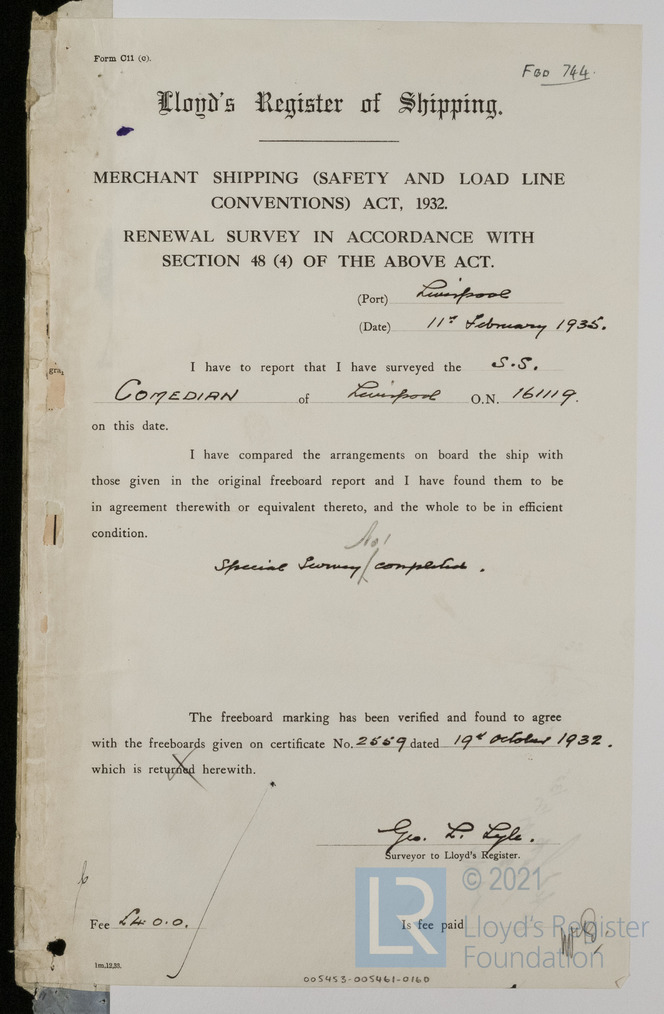 Form C11 (o).
FBD 744.
Lloyd's Register of Shipping.
MERCHANT SHIPPING (SAFETY AND LOAD LINE
CONVENTIONS) ACT, 1932.
RENEWAL SURVEY IN ACCORDANCE WITH
SECTION 48 (4) OF THE ABOVE ACT.
(Port) Liverpool
(Date) 11th February 1935.
I have to report that I have surveyed the S.S.
COMEDIAN of Liverpool O.N. 161119.
on this date.
I have compared the arrangements on board the ship with
those given in the original freeboard report and I have found them to be
in agreement therewith or equivalent thereto, and the whole to be in efficient
condition.
No 1
Special Survey / completed.
The freeboard marking has been verified and found to agree
with the freeboards given on certificate No. 2559 dated 19th October 1932.
which is returned herewith.
Geo. L. Lyle.
Surveyor to Lloyd's Register.
Fee £4.0.0. Is fee paid
1m,12,33.
LR © 2021
Lloyd's Register
Foundation
005453-005461-0160